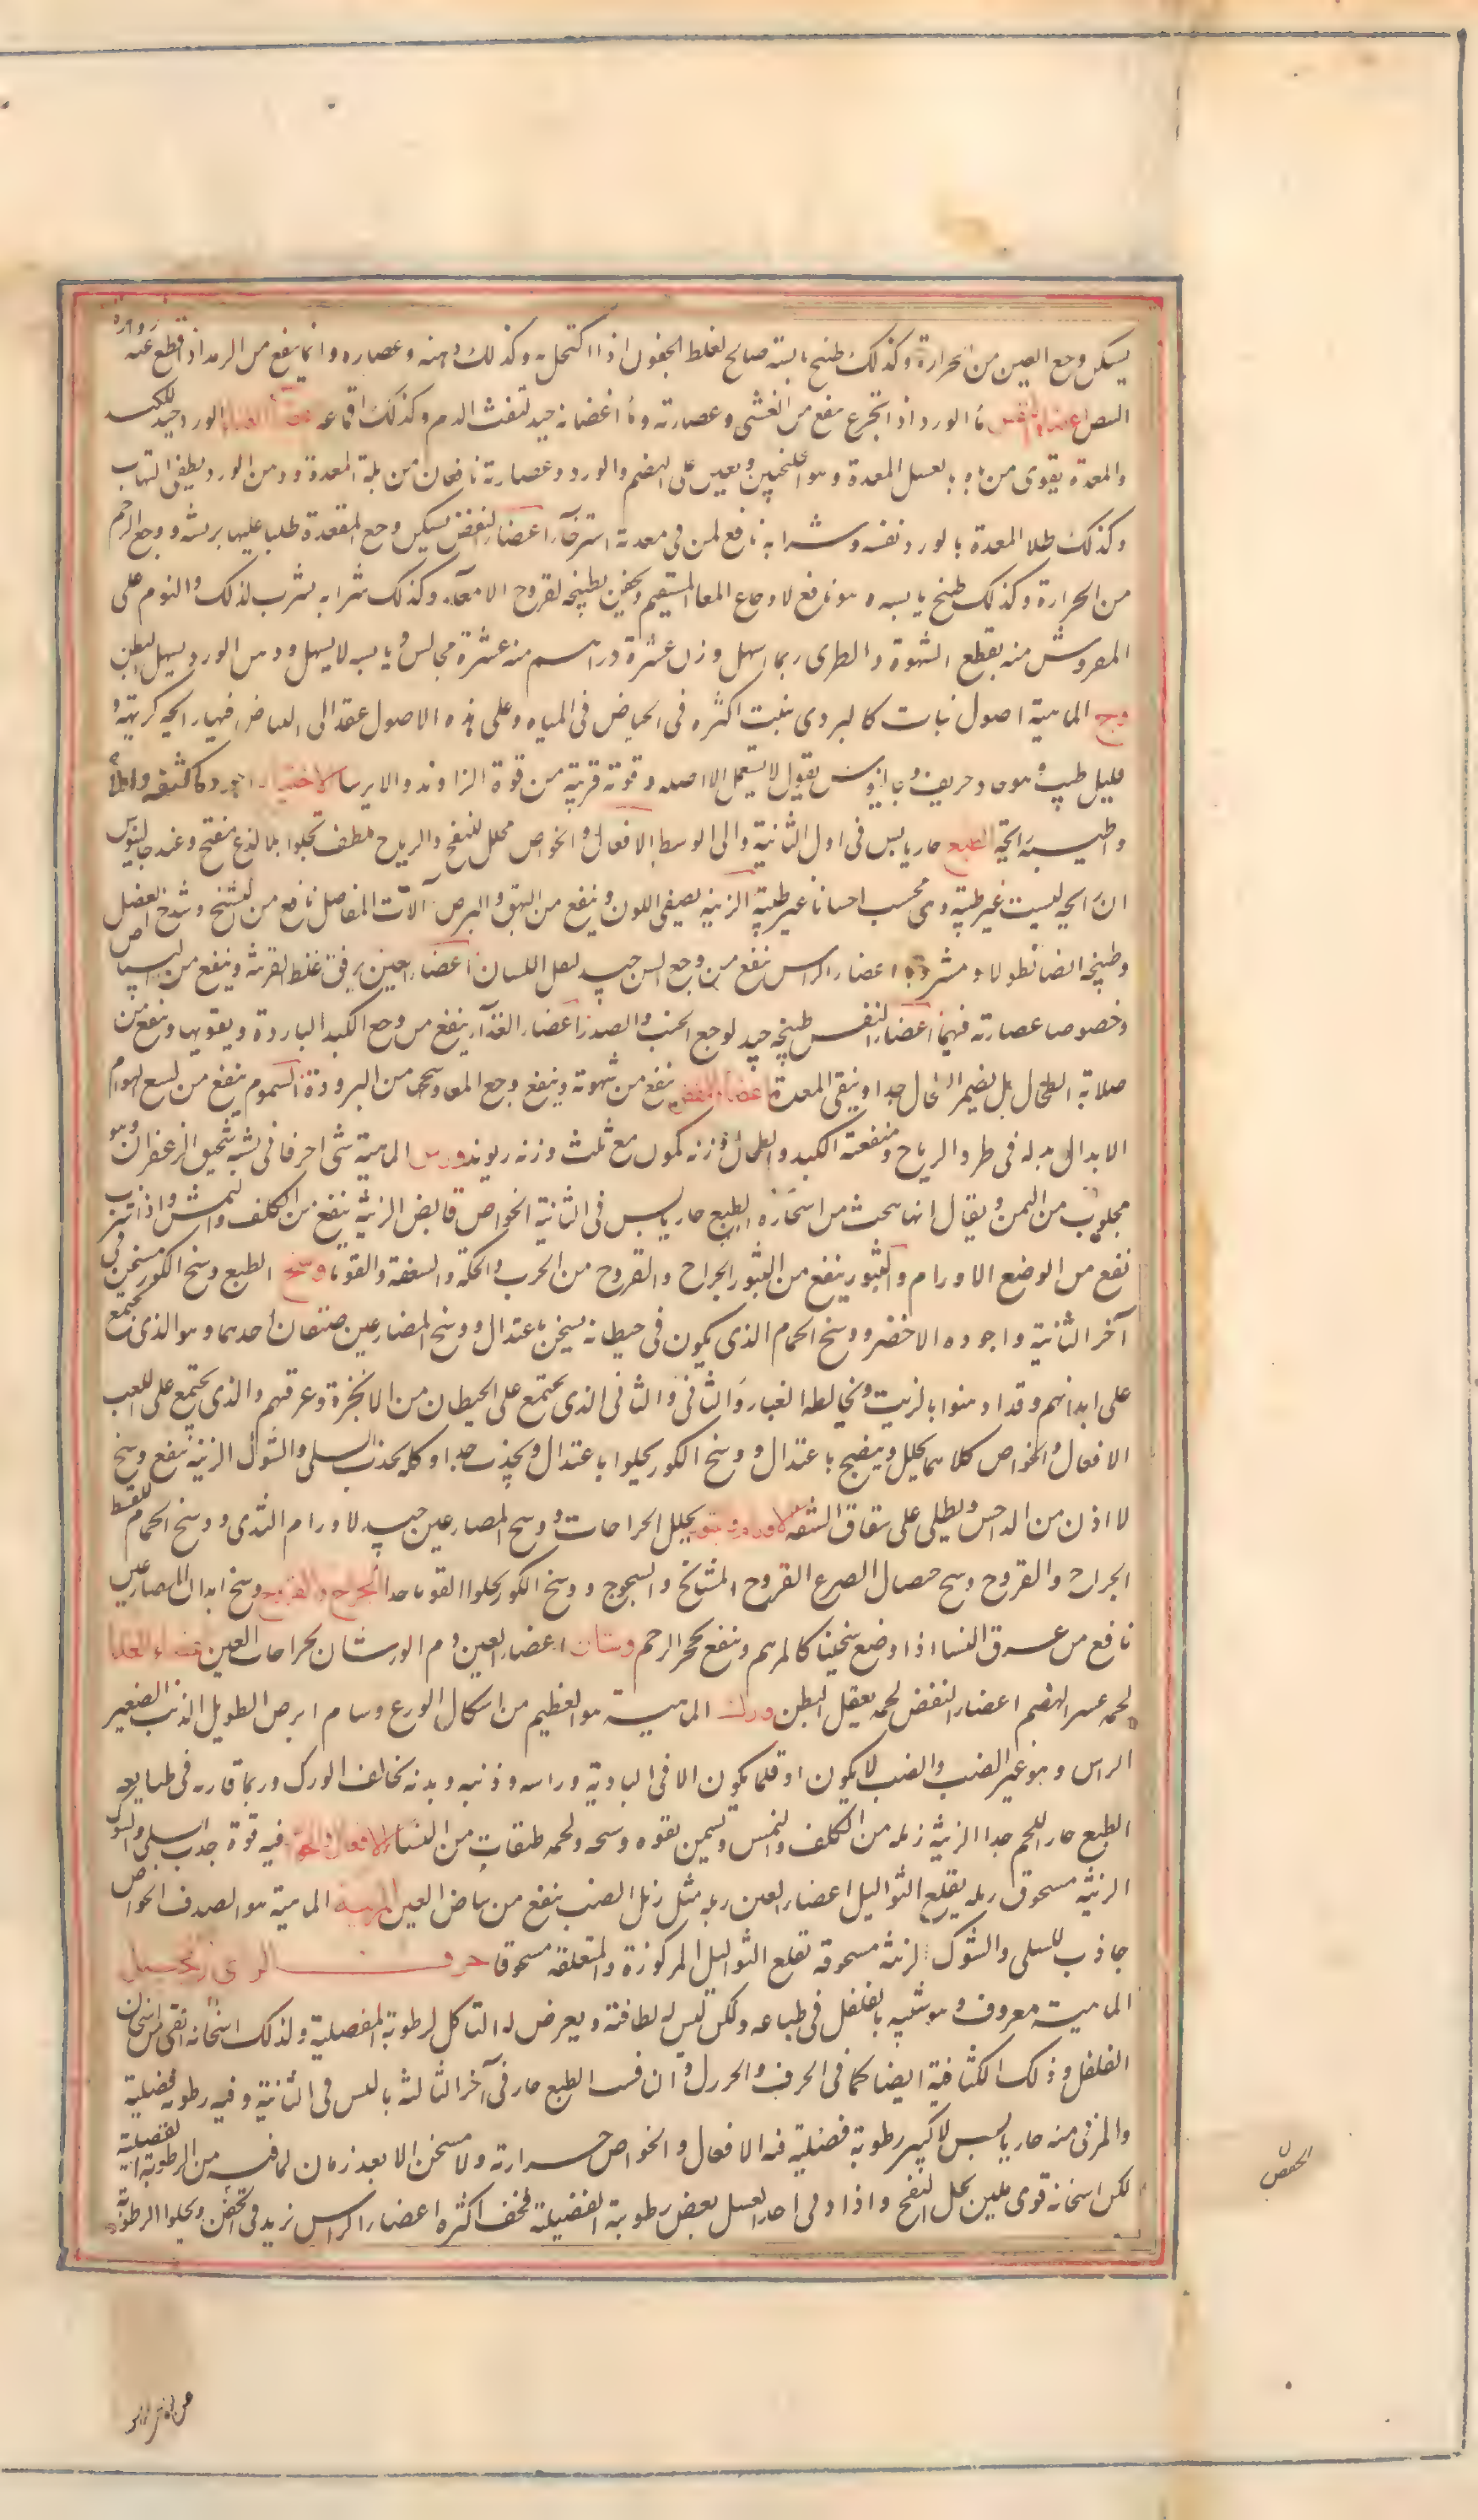 يسكن وجع العين من الحرارة وكذلك طبيخ يابسه صالح لغلظ الجفون اذا اكتحل به وكذلك دهنه وعصاره وانما ينفع من الرمد اذا قطع عنه
البيض اعضاء النفس ماء الورد اذا تجرع ينفع من الغشي وعصارته وماء اغصانه جيد لنفث الدم وكذلك اقماعه اعضاء الغذاء الورد جيد للكبد
والمعدة يقوى من به بالعسل المعدة وهو الجلنجبين ويعين على الهضم والورد وعصارته نافعان من بلة المعدة ودهن الورد يطفئ التهاب
وكذلك طلاء المعدة بالورد نفسه وشرابه نافع لمن في معدته استرخاء اعضاء النفض يسكن وجع المقعدة طليا عليها بريشه ووجع الرحم
من الحرارة وكذلك طبيخ يابسه وهو نافع لاوجاع المعاء المستقيم ويحقن بطبيخه لقروح الامعاء وكذلك شرابه يشرب لذلك والنوم على
المفروش منه يقطع الشهوة والطرى ربما اسهل وزن عشرة دراهم منه عشرة مجالس ويابسه لا يسهل ودهن الورد يسهل البطن
وج الماهية اصول نبات كالبردى ينبت اكثره في الحياض في المياه وعلى هذه الاصول عقد الى البياض فيها رائحة كريهة و
قليل طيب وهو حاد حريف وجالينوس يقول لا يستعمل الا اصله وقوته قريبة من قوة الزراوند والايرسا الاختيار اجوده اكثفه واملأه
واطيبه رائحة الطبع حار يابس في اول الثانية والى الوسط الافعال والخواص محلل للنفخ والرياح ملطف يجلوا بلا لذع مفتح وعند جالينوس
ان رائحته ليست غير طيبة وهي تحسب احسانا غير طيبة الزينة يصفى اللون وينفع من البهق والبرص آلات المفاصل نافع من التشنج وشدخ العضل
وطبيخه ايضا نطولا ومشروبا اعضاء الراس ينفع من وجع السن جيد لثقل اللسان اعضاء العين يرقق غلظ القرنية وينفع من البياض
وخصوصا عصارته فيهما اعضاء النفس طبيخه جيد لوجع الجنب والصدر اعضاء الغذاء ينفع من وجع الكبد الباردة ويقويها وينفع من
صلابة الطحال بل يضمر الطحال جدا وينقى المعدة اعضاء النفض ينفع من شهوته وينفع وجع المعا وسحجها من البرودة السموم ينفع من لسع الهوام
الابدال بدله في طرد الرياح ومنفعته الكبد والطحال وزنه كمون مع ثلث وزنه ريوند ورس الماهية شئ احمر قانى يشبه سحيق الزعفران وهو
مجلوب من اليمن ويقال انها ينحت من اشجاره الطبع حار يابس في الثانية الخواص قابض الزينة ينفع من الكلف والنمش واذا شرب
نفع من الوضح الاورام والبثور ينفع من البثور الجراح والقروح من الجرب والحكة والسعفة والقوبا وسخ الطبع وسخ الكور مسخن في
آخر الثانية واجوده الاخضر ووسخ الحمام الذى يكون في حيطانه يسخن باعتدال ووسخ المصارعين صنفان احدهما وهو الذى يجتمع
على ابدانهم وقد ادهنوا بالزيت ويخالطه الغبار والثانى والثانى الذى يجتمع على الحيطان من الابخرة وعرقهم والذى يجتمع على اللعب
الافعال والخواص كلاهما يحلل وينضج باعتدال ووسخ الكور يجلوا باعتدال ويجذب جدا وكله يجذب السلى والشوك الزينة ينفع وسخ
لا اذن من الداحس ويطلى على شقاق الشفة الاورام والبثور يحلل الجراحات ووسخ المصارعين جيد لاورام الثدى ووسخ الحمام للتنفط
الجراح والقروح القروح المشايخ والسحوج ووسخ الكور يجلوا القوبا جدا الجراح والقروح وسخ ابدان المصارعين
نافع من عرق النسا اذا وضع سخينا كالمرهم وينفع تحجر الرحم ورشان اعضاء العين دم الورشان لجراحات العين اعضاء الغذا
لحمه عسر الهضم اعضاء النفض لحمه يعقل البطن ورل الماهية هو العظيم من اشكال الوزغ وسام ابرص الطويل الذنب الصغير
الراس وهو غير الضب والضب لا يكون او قلما يكون الا في البادية وراسه وذنبه وبدنه تخالف الورل وربما قاربه في طبايعه
الطبع حار اللحم جدا الزينة زبله من الكلف والنمش وتسمين بقوه وشحمه ولحمه طبقات من النساء الافعال والخواص فيه قوة جذب السلى والشوك
الزينة مسحوق زبله يقلع الثواليل اعضاء العين زبله مثل زبل الضب ينفع من بياض العين الماهية هو الصدف الخواص
جاذب للسلى والشوك الزينة مسحوقه تقلع الثواليل المركوزة والمتعلقة مسحوقا حرف الزاى زنجبيل
الماهية معروف وهو شبيه بالفلفل في طباعه ولكن ليس له لطافته ويعرض له التاكل لرطوبته الفضلية ولذلك اسخانه ابقى من اسخان
الفلفل وذلك لكثافته ايضا كما في الحرف والخردل والثافسيا الطبع حار في آخر الثالثة يابس في الثانية وفيه رطوبة فضلية
والمربى منه حار يابس لاكبير رطوبة فضلية فيه الافعال والخواص حرارته ولا يسخن الا بعد زمان لما فيه من الرطوبة الفضلية
لكن اسخانه قوى ملين يحلل النفخ واذا ربى اخذ العسل بعض رطوبته الفضلية فيجف اكثره اعضاء الراس يزيد في الحفظ ويجلوا الرطوبة